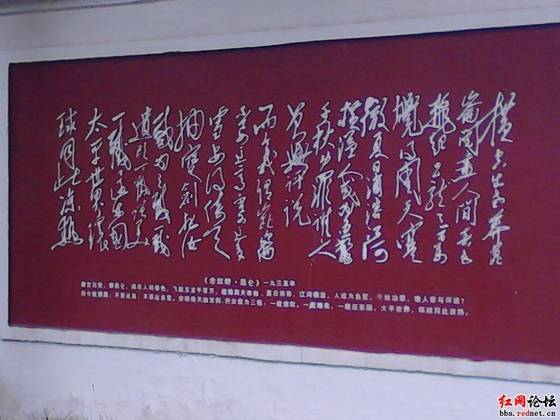 横空出世莽昆
仑阅尽人间春色
飞起玉龙三百万
搅得周天寒
彻夏日消溶江河
横溢人或为鱼鳖
千秋功罪谁人
曾与评说
而今我谓昆仑
不要这高不要这多
雪安得倚天
抽宝剑把汝
裁为三截一截
遗欧一截赠美
一截还东国
太平世界环
球同此凉热
《念奴娇·昆仑》一九三五年
横空出世，莽昆仑，阅尽人间春色。飞起玉龙三百万，搅得周天寒彻。夏日消溶，江河横溢，人或为鱼鳖。千秋功罪，谁人曾与评说？
而今我谓昆仑：不要这高，不要这多雪。安得倚天抽宝剑，把汝裁为三截？一截遗欧，一截赠美，一截还东国。太平世界，环球同此凉热。
红网论坛
bbs.rednet.cn